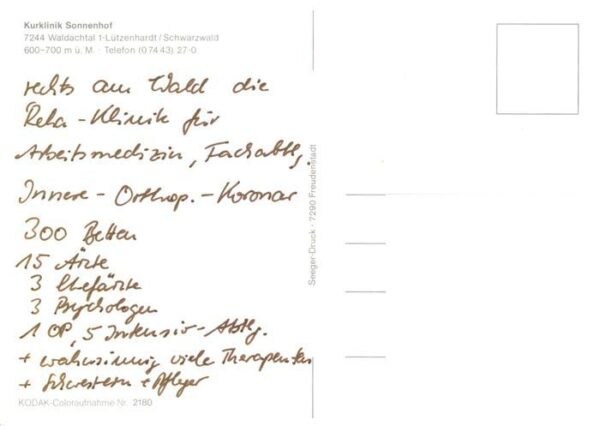 Kurklinik Sonnenhof
7244 Waldachtal 1-Lützenhardt/Schwarzwald
600–700 m ü. M. · Telefon (0 74 43) 27-0
rechts am Wald die
Reha-Klinik für
Arbeitsmedizin, Fachabtlg.
Innere - Orthop. - Koronar
300 Betten
15 Ärzte
3 Chefärzte
3 Psychologen
1 OP, 5 Intensiv-Abtlg.
+ wahnsinnig viele Therapeuten
+ Schwestern + Pfleger
KODAK-Coloraufnahme Nr. 2180
Seeger-Druck · 7290 Freudenstadt